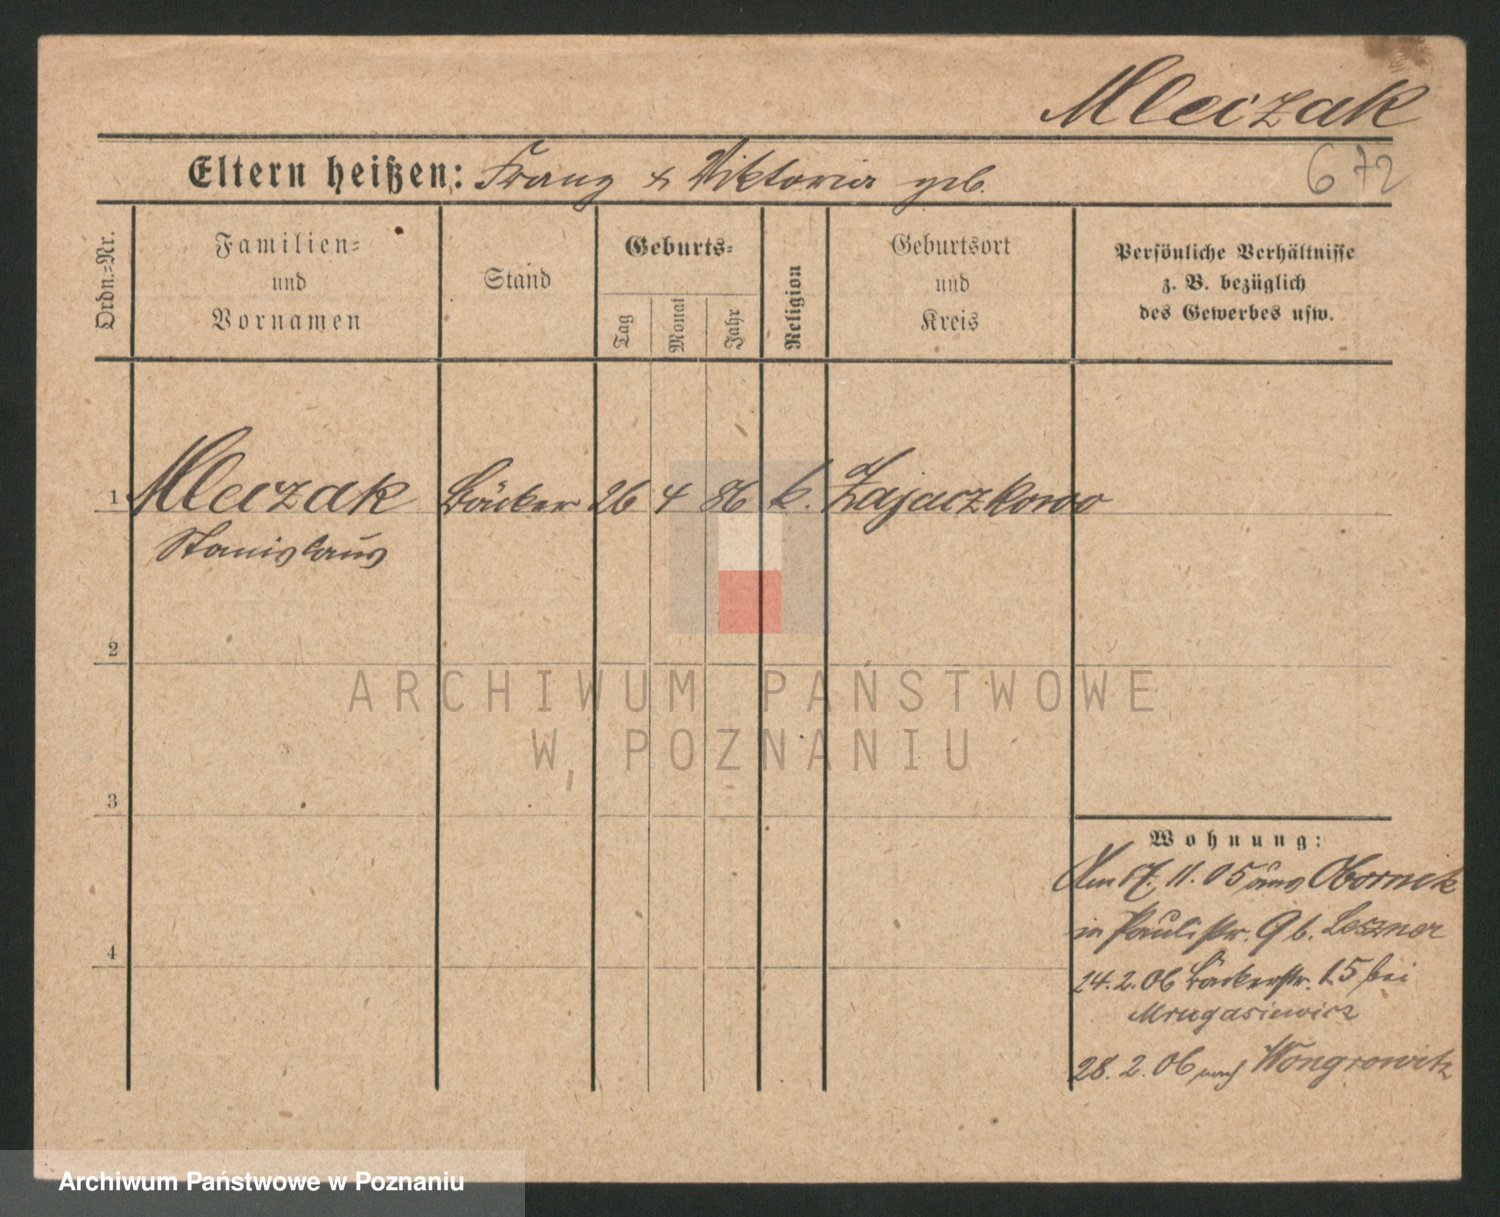 Mleczak
Eltern heißen: Franz & Viktoria geb.
672
Ordn.=Nr.
Familien=
und
Vornamen
Stand
Geburts=
Tag
Monat
Jahr
Religion
Geburtsort
und
Kreis
Persönliche Verhältnisse
z. B. bezüglich
des Gewerbes usw.
1 Mleczak Bäcker 26 4 86 k. Zajaczkowo
Stanislaus
2
3
4
Wohnung:
Am 17. 11. 05 aus Obornik
in Paulistr. 9 b. Leszner
24. 2. 06 Bäckerstr. 15 bei
Mrugasiewicz
28. 2. 06 nach Wongrowitz
ARCHIWUM PAŃSTWOWE
W POZNANIU
Archiwum Państwowe w Poznaniu